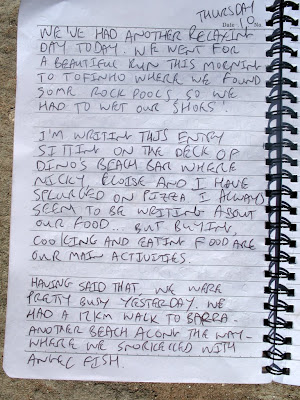 THURSDAY
Date 10 No
WE'VE HAD ANOTHER RELAXING
DAY TODAY. WE WENT FOR
A BEAUTIFUL RUN THIS MORNING
TO TOFINHO WHERE WE FOUND
SOME ROCK POOLS SO WE
HAD TO WET OUR 'SHOES'.
I'M WRITING THIS ENTRY
SITTING ON THE DECK OF
DINO'S BEACH BAR WHERE
NICKY, ELOISE AND I HAVE
SPLURGED ON PIZZA. I ALWAYS
SEEM TO BE WRITING ABOUT
OUR FOOD... BUT BUYING,
COOKING AND EATING FOOD ARE
OUR MAIN ACTIVITIES.
HAVING SAID THAT WE WERE
PRETTY BUSY YESTERDAY. WE
HAD A 12KM WALK TO BARRA.
ANOTHER BEACH ALONG THE WAY -
WHERE WE SNORKELLED WITH
ANGEL FISH.